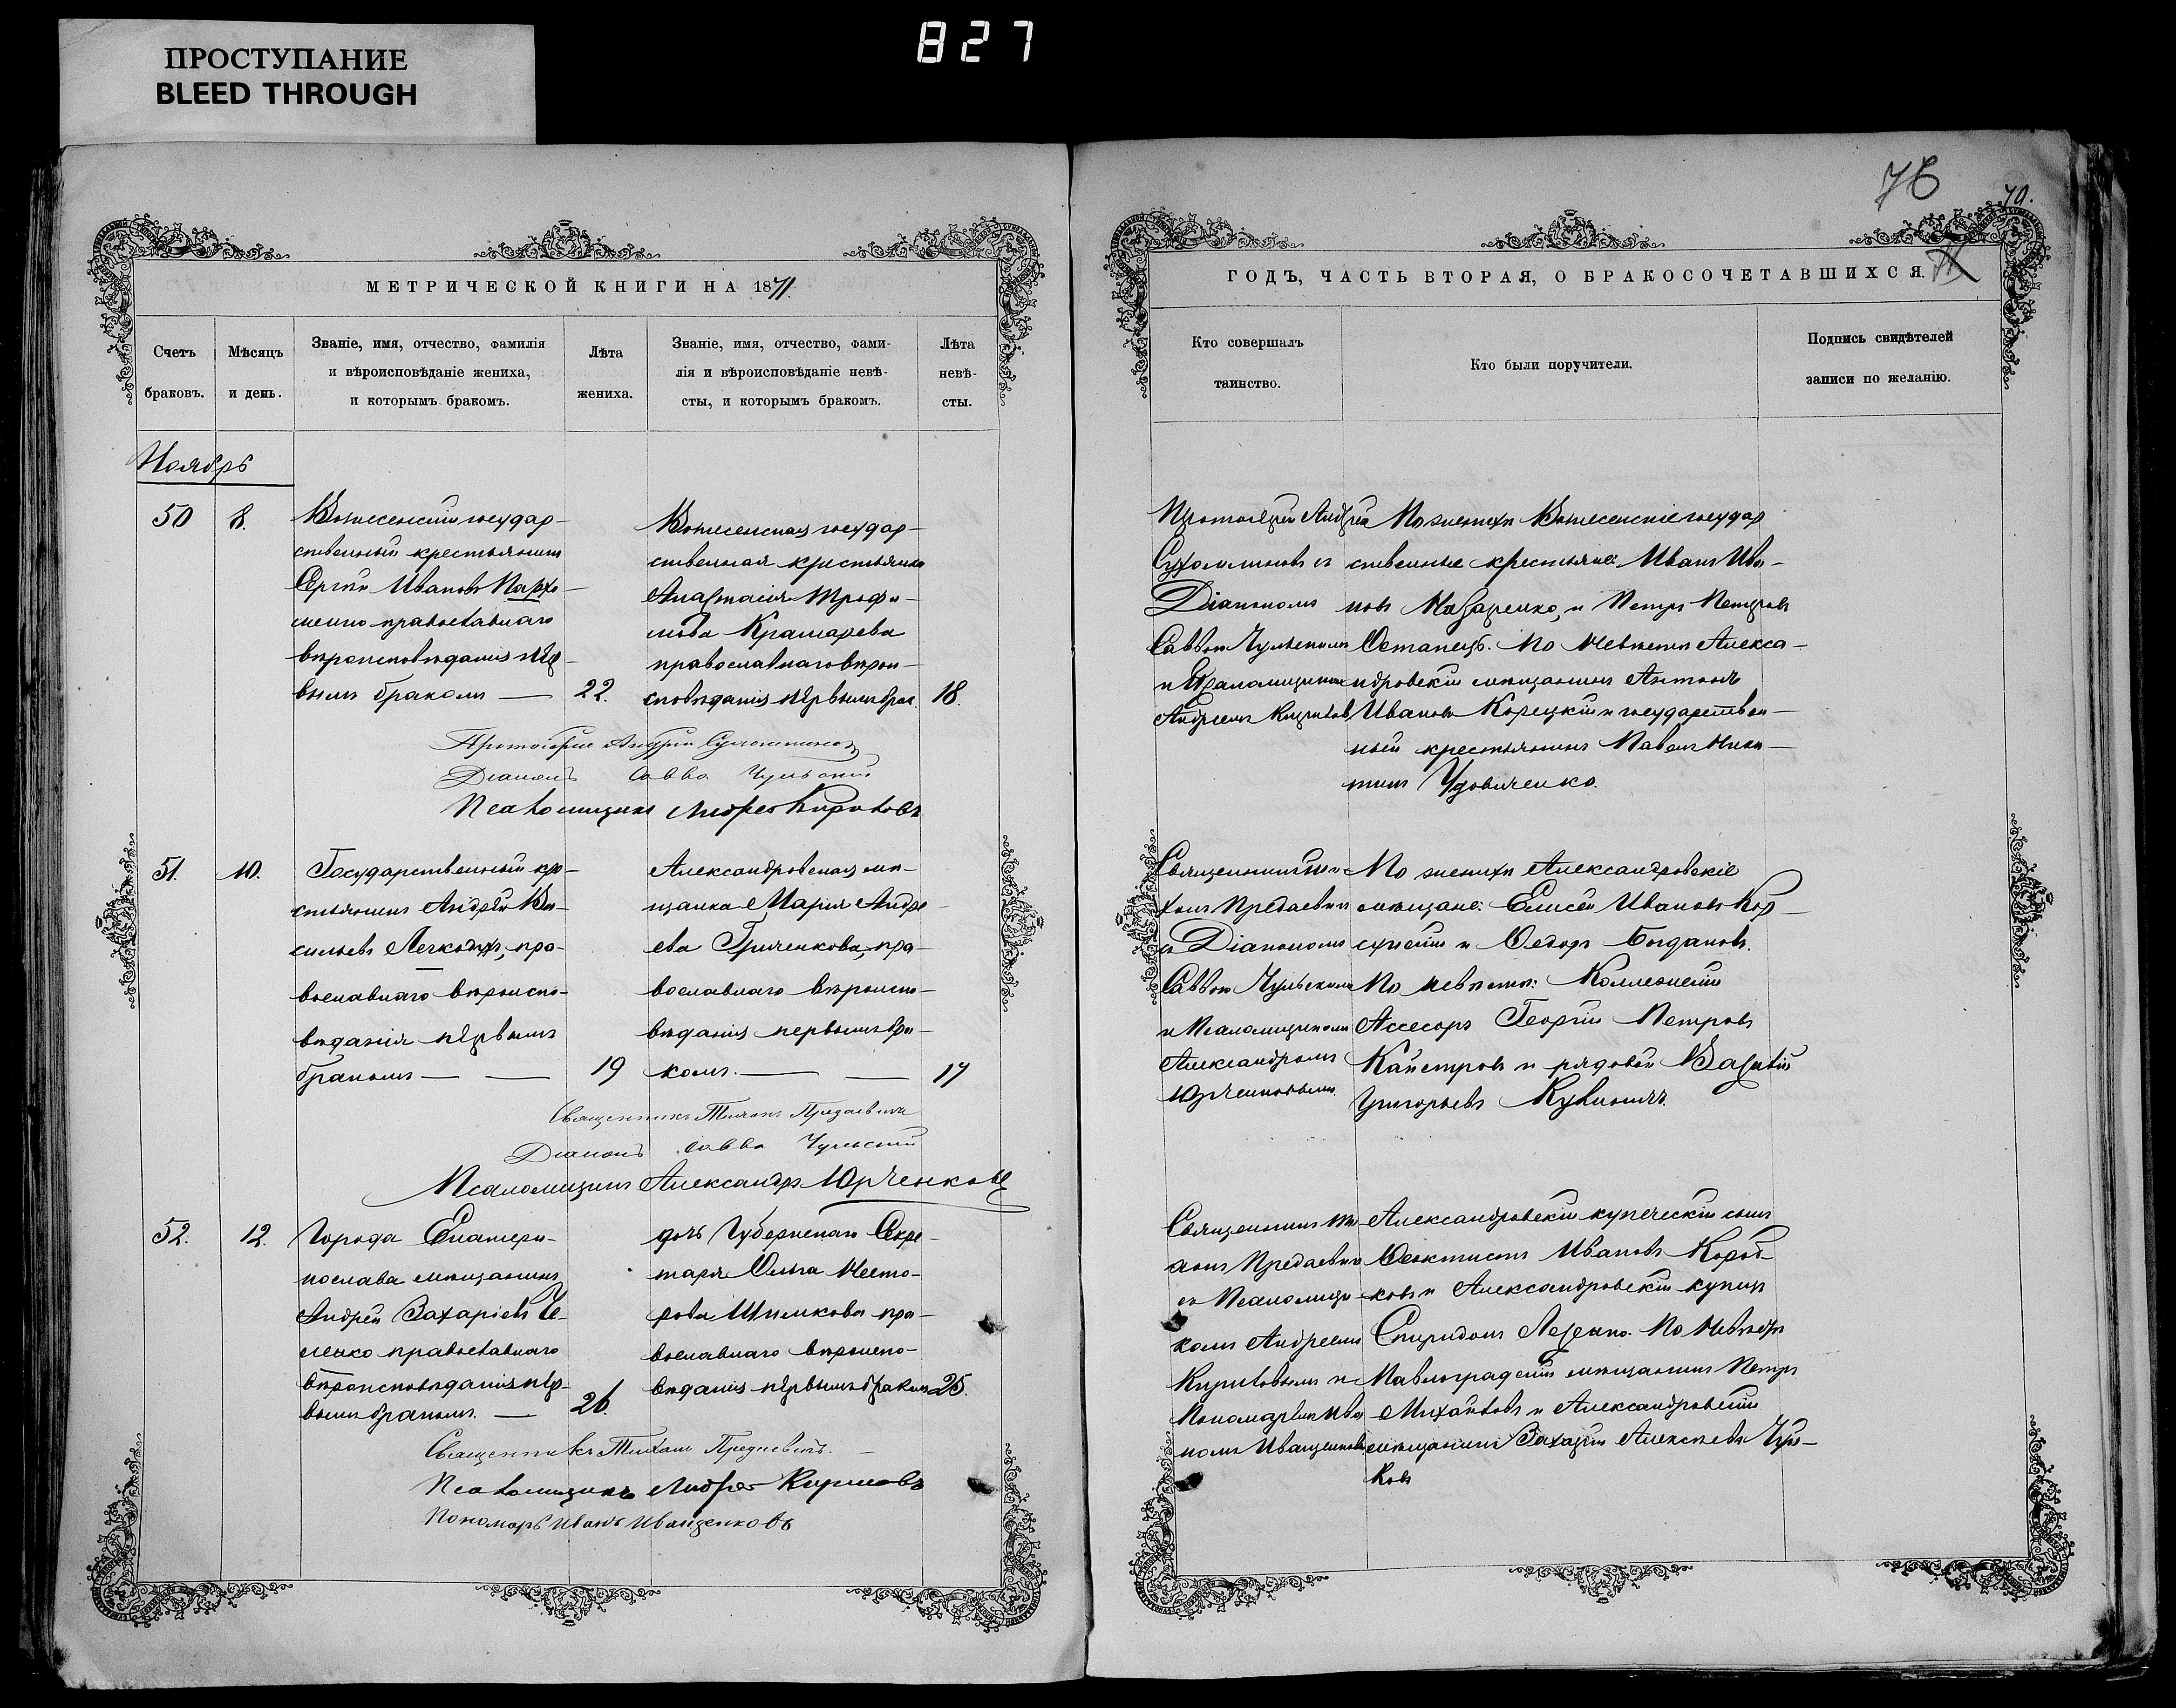 ПРОСТУПАНИЕ
BLEED THROUGH
827
76
70.
МЕТРИЧЕСКОЙ КНИГИ НА 1871.
Счетъ
браковъ.
Мѣсяцъ
и день.
Званіе, имя, отчество, фамилія
и вѣроисповѣданіе жениха,
и которымъ бракомъ.
Лѣта
жениха.
Званіе, имя, отчество, фами-
лія и вѣроисповѣданіе невѣ-
сты, и которымъ бракомъ.
Лѣта
невѣ-
сты.
Ноябрь
50
8.
Вознесенскій государ-
ственный крестьянинъ
Сергѣй Ивановъ Пархо-
менко православнаго
вѣроисповѣданія пер-
вымъ бракомъ —
22.
Вознесенская государ-
ственная крестьянка
Анастасія Трофи-
мова Крамарева
православнаго вѣрои-
сповѣданія первымъ брак.
18.
Протоіерей Андрей Сухомлиновъ
Діаконъ Савва Чульскій
Псаломщикъ Андрей Кириловъ
51.
10.
Государственный кре-
стьянинъ Андрей Ва-
сильевъ Легкодухъ, пра-
вославнаго вѣроиспо-
вѣданія первымъ
бракомъ — —
19
Александровская мѣ-
щанка Марія Андре-
ева Гриченкова, пра-
вославнаго вѣроиспо-
вѣданія первымъ бра-
комъ. — —
17
Священникъ Тихонъ Предаевичъ
Діаконъ Савва Чульскій
Псаломщикъ Александръ Юрченковъ
52.
12.
Города Екатери-
нослава мѣщанинъ
Андрей Захаріевъ Че-
ленко православнаго
вѣроисповѣданія пер-
вымъ бракомъ. —
26.
дочь Губернскаго Секре-
таря Ольга Несто-
рова Шпилкова пра-
вославнаго вѣроиспо-
вѣданія первымъ бракомъ
25.
Священникъ Тихонъ Предаевичъ.
Псаломщикъ Андрей Кириловъ
Пономарь Иванъ Иващенковъ
ГОДЪ, ЧАСТЬ ВТОРАЯ, О БРАКОСОЧЕТАВШИХСЯ.
Кто совершалъ
таинство.
Кто были поручители.
Подпись свидѣтелей
записи по желанію.
Протоіерей Андрей
Сухомлиновъ съ
Діакономъ
Саввою Чульскимъ
и Псаломщикомъ
Андреемъ Кириловъ
По женихѣ Вознесенскіе государ
ственные крестьяне: Иванъ Ива-
новъ Назаренко, и Петръ Петровъ
Останецъ. По невѣстѣ Алекса-
ндровскій мѣщанинъ Антонъ
Ивановъ Корецкій и государствен-
ный крестьянинъ Павелъ Ники-
тинъ Удовиченко.
Священникъ Ти-
хонъ Предаевичъ
и Діакономъ
Саввою Чульскимъ
и Псаломщикомъ
Александромъ
Юрченковымъ.
По женихѣ Александровскіе
мѣщане: Елисѣй Ивановъ Кор-
и Ѳедоръ Богдановъ.
По невѣстѣ: Коллежскій
Ассесоръ Георгій Петровъ
и рядовой Василій
Григорьевъ
Священникъ Ти-
хонъ Предаевичъ
съ Псаломщи-
комъ Андреемъ
Кириловымъ и
Пономаремъ Ива-
номъ Иващенковымъ
Александровскій купеческій сынъ
Ѳеоктистъ Ивановъ Короб-
ковъ и Александровскій купецъ
Спиридонъ По невѣстѣ
Павлоградскій мѣщанинъ Петръ
Михайловъ и Александровскій
мѣщанинъ Захарій Алексѣевъ Чуй-
ковъ